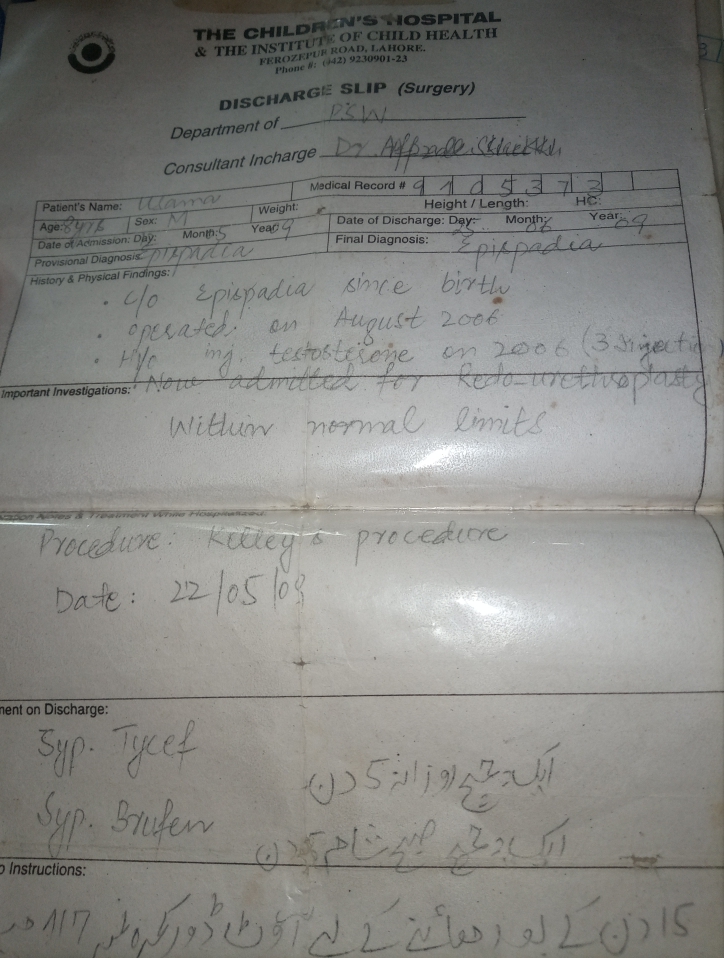 THE CHILDREN'S HOSPITAL
& THE INSTITUTE OF CHILD HEALTH
FEROZEPUR ROAD, LAHORE.
Phone #: (042) 9230901-23
DISCHARGE SLIP (Surgery)
Department of PSW
Consultant Incharge Dr.
Medical Record # 9 1 0 5 3 7 3
Patient's Name: Usama Weight: Height / Length: HC:
Age: Sex: M Date of Discharge: Day: 25 Month: Year: 09
Date of Admission: Day: Month: 5 Year: 09 Final Diagnosis: Epispadia
Provisional Diagnosis: Epispadia
History & Physical Findings:
• C/o Epispadia since birth
• operated on August 2006
• H/o inj. testosterone on 2006 (3 Injection)
Now admitted for Redo-urethroplasty
Important Investigations:
Within normal limits
& Treatment While Hospitalized:
Procedure: Kelley's procedure
Date: 22/05/09
ment on Discharge:
Syp. Tycef ایک چمچ روزانہ 5 دن
Syp. Brufen ایک چمچ صبح شام 5 دن
Instructions:
15 دن کے بعد معائنے کے لئے آؤٹ ڈور کمرہ نمبر 117